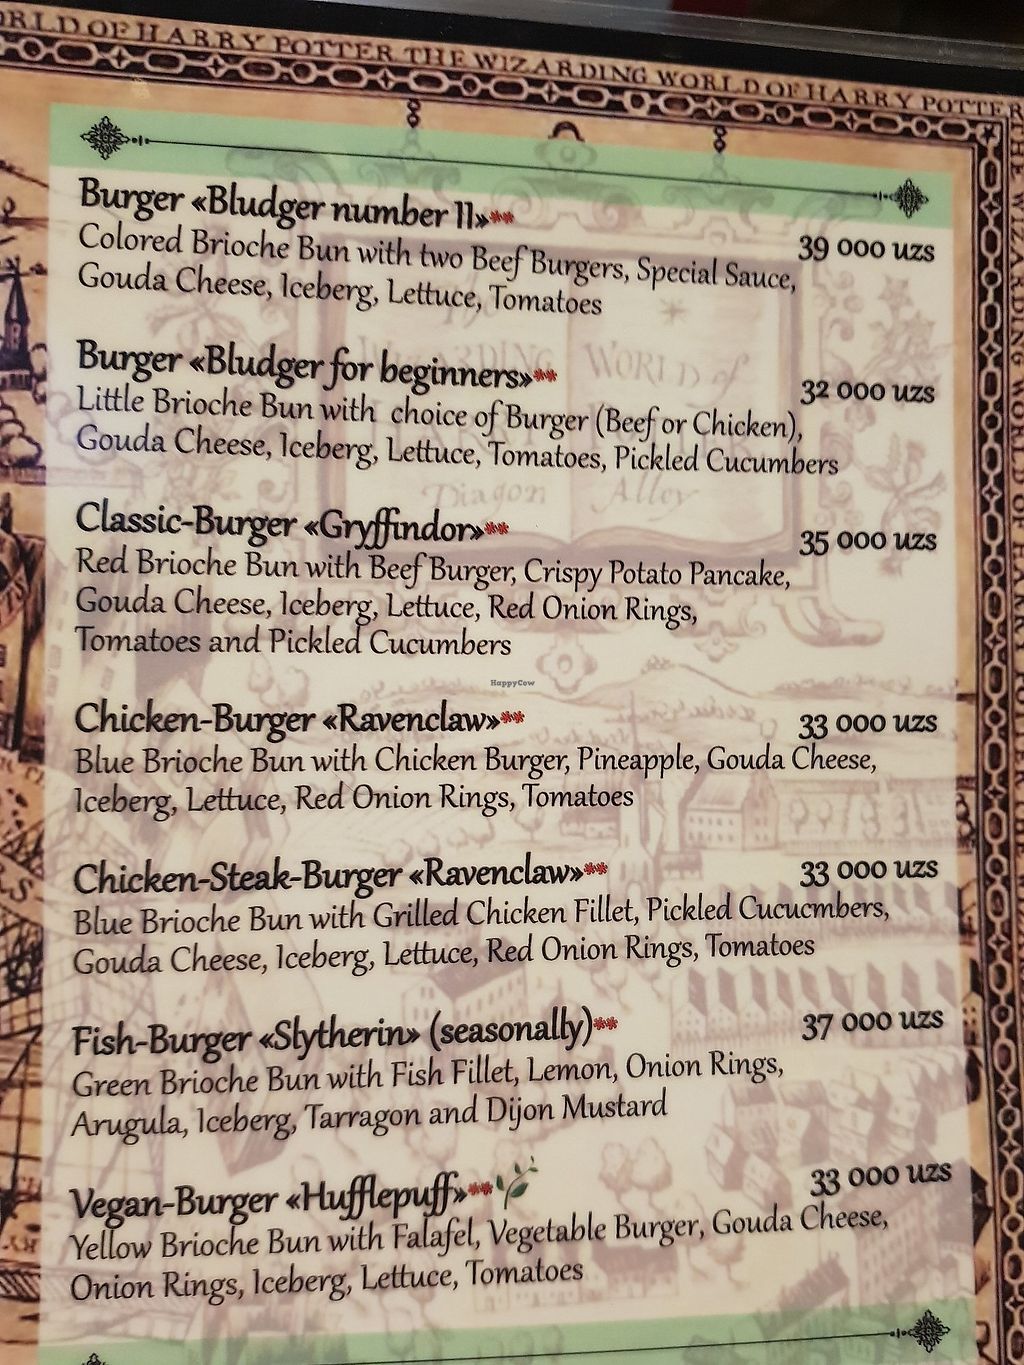 WORLD OF HARRY POTTER THE WIZARDING WORLD OF HARRY POTTER
Burger «Bludger number 11»**
39 000 UZS
Colored Brioche Bun with two Beef Burgers, Special Sauce,
Gouda Cheese, Iceberg, Lettuce, Tomatoes
Burger «Bludger for beginners»**
32 000 UZS
Little Brioche Bun with choice of Burger (Beef or Chicken),
Gouda Cheese, Iceberg, Lettuce, Tomatoes, Pickled Cucumbers
WORLD of
Diagon Alley
Classic-Burger «Gryffindor»**
35 000 UZS
Red Brioche Bun with Beef Burger, Crispy Potato Pancake,
Gouda Cheese, Iceberg, Lettuce, Red Onion Rings,
Tomatoes and Pickled Cucumbers
HappyCow
Chicken-Burger «Ravenclaw»**
33 000 UZS
Blue Brioche Bun with Chicken Burger, Pineapple, Gouda Cheese,
Iceberg, Lettuce, Red Onion Rings, Tomatoes
Chicken-Steak-Burger «Ravenclaw»**
33 000 UZS
Blue Brioche Bun with Grilled Chicken Fillet, Pickled Cucucmbers,
Gouda Cheese, Iceberg, Lettuce, Red Onion Rings, Tomatoes
Fish-Burger «Slytherin» (seasonally)**
37 000 UZS
Green Brioche Bun with Fish Fillet, Lemon, Onion Rings,
Arugula, Iceberg, Tarragon and Dijon Mustard
Vegan-Burger «Hufflepuff»**
33 000 UZS
Yellow Brioche Bun with Falafel, Vegetable Burger, Gouda Cheese,
Onion Rings, Iceberg, Lettuce, Tomatoes
THE WIZARDING WORLD OF HARRY POTTER THE WIZARDING